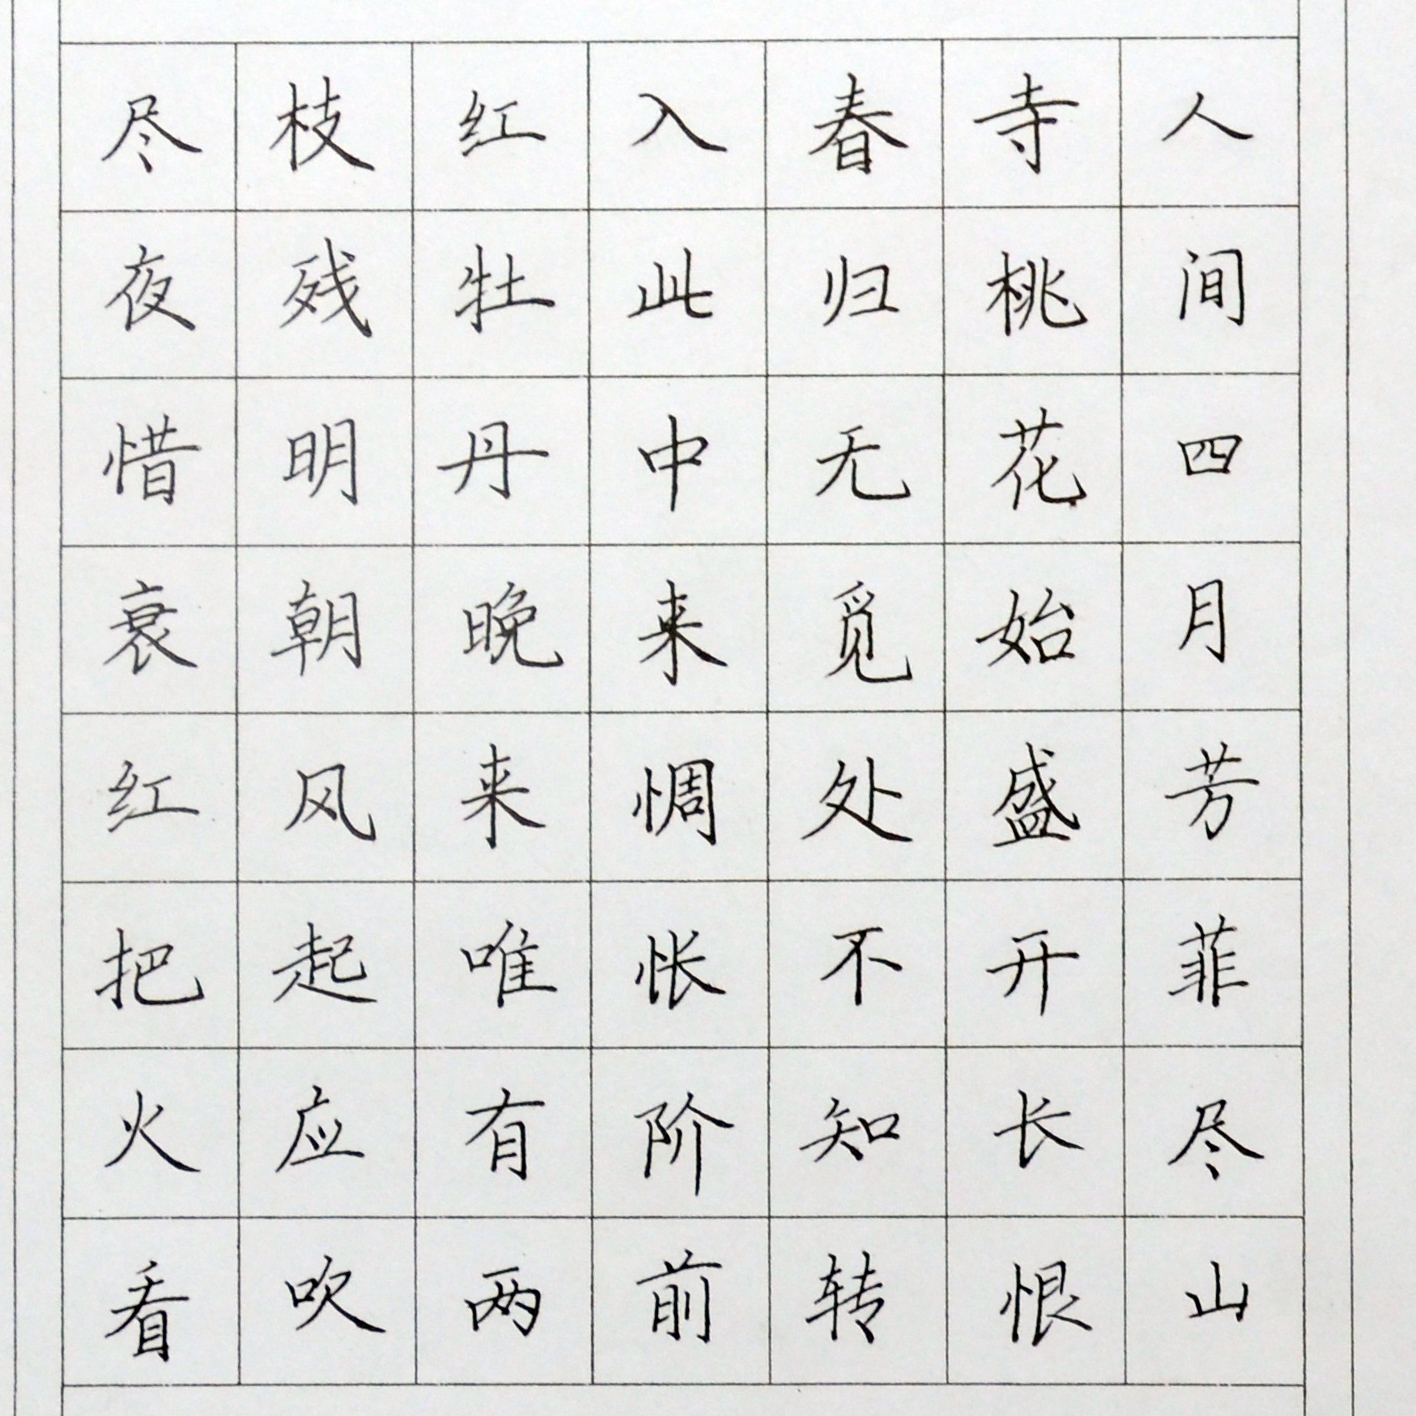 人间四月芳菲尽山
寺桃花始盛开长恨
春归无觅处不知转
入此中来惆怅阶前
红牡丹晚来唯有两
枝残明朝风起应吹
尽夜惜衰红把火看